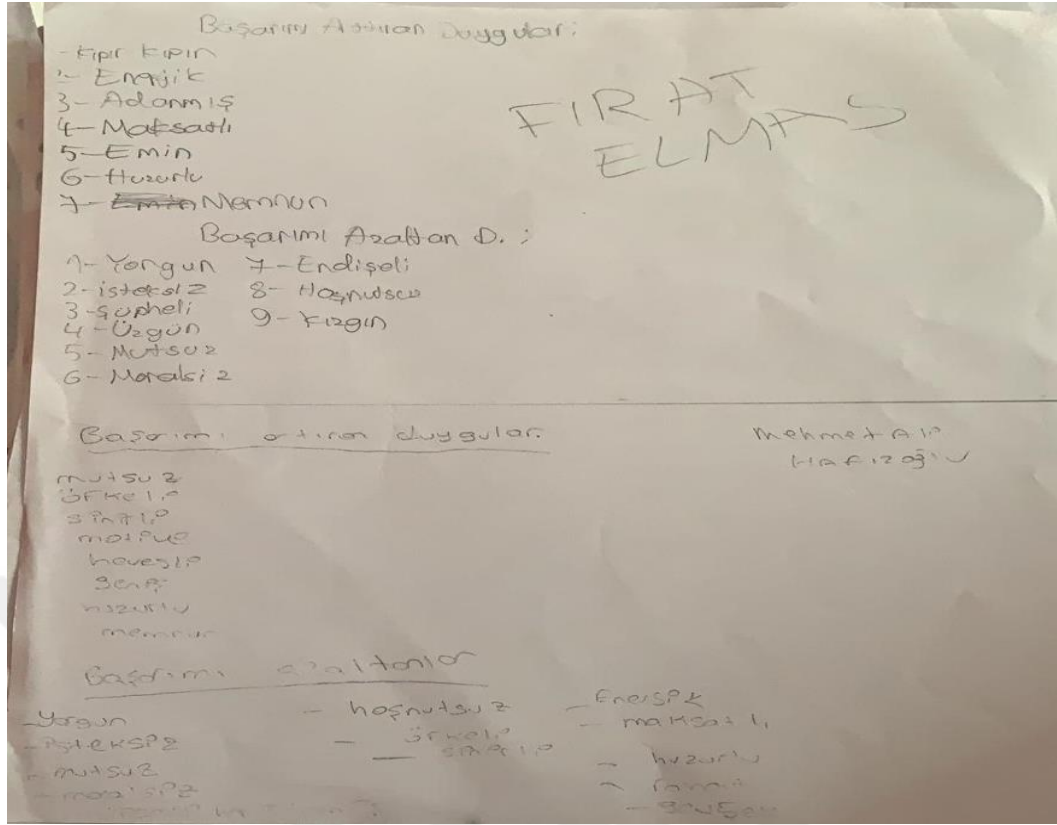 Başarımı Attıran Duygular:
- Kıpır Kıpır
2- Enerjik
3- Adanmış
4- Maksatlı
5- Emin
6- Huzurlu
7- Memnun
FIRAT
ELMAS
Başarımı Azaltan D. :
1- Yorgun
2- isteksiz
3- Şüpheli
4- Üzgün
5- Mutsuz
6- Moralsiz
7- Endişeli
8- Hoşnutsuz
9- Kızgın
Başarımı artıran duygular.
Mehmet Alp
HAFızoğlu
mutsuz
öfkeli
sinirli
motive
hevesli
huzurlu
memnun
Başarımı azaltanlar
- Yorgun
- isteksiz
- mutsuz
- hoşnutsuz
- öfkeli
- sinirli
- Enerjik
- maksatlı
- huzurlu